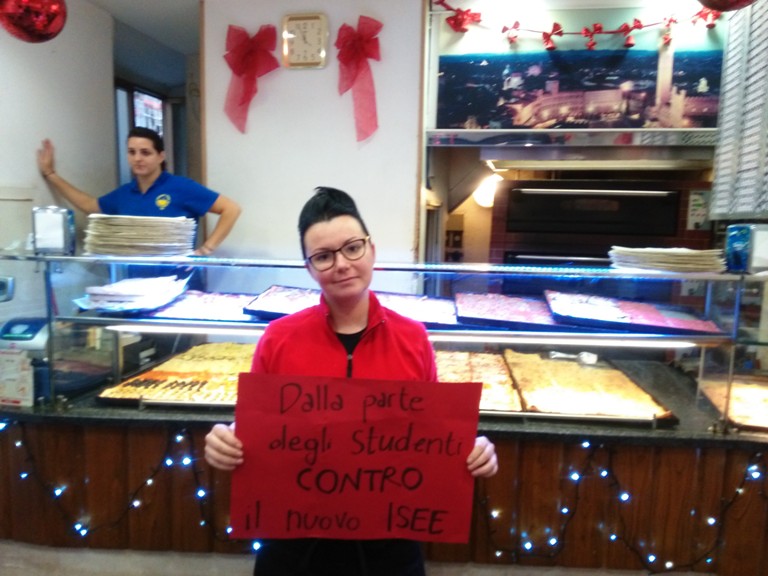 Dalla parte
degli studenti
CONTRO
il nuovo ISEE